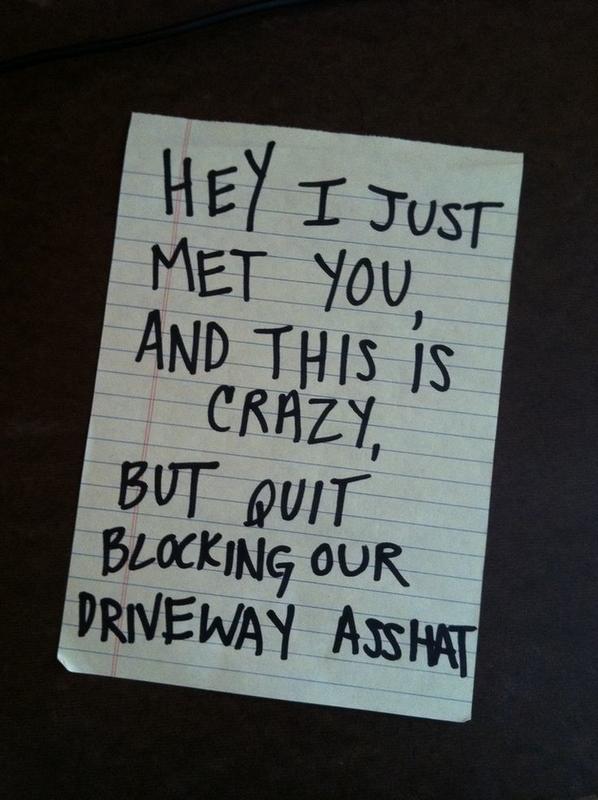 HEY I JUST
MET YOU,
AND THIS IS
CRAZY,
BUT QUIT
BLOCKING OUR
DRIVEWAY ASSHAT